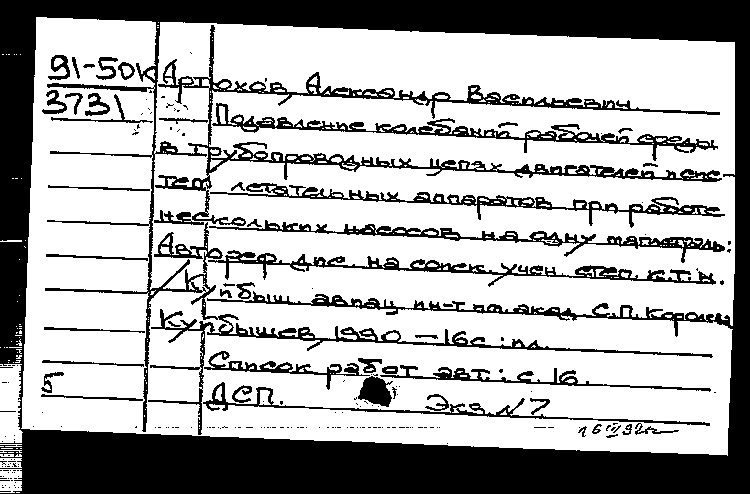 91-50к Артюхов, Александр Васильевич.
3731 Подавление колебаний рабочей среды
в трубопроводных цепях двигателей и сис-
тем летательных аппаратов при работе
нескольких насосов на одну магистраль:
Автореф. дис. на соиск. учен. степ. к.т.н.
/Куйбыш. авиац. ин-т им. акад. С.П. Королева
Куйбышев, 1990 – 16с : ил.
Список работ авт.: с. 16.
5 ДСП. Экз. N 7
16 III 92г